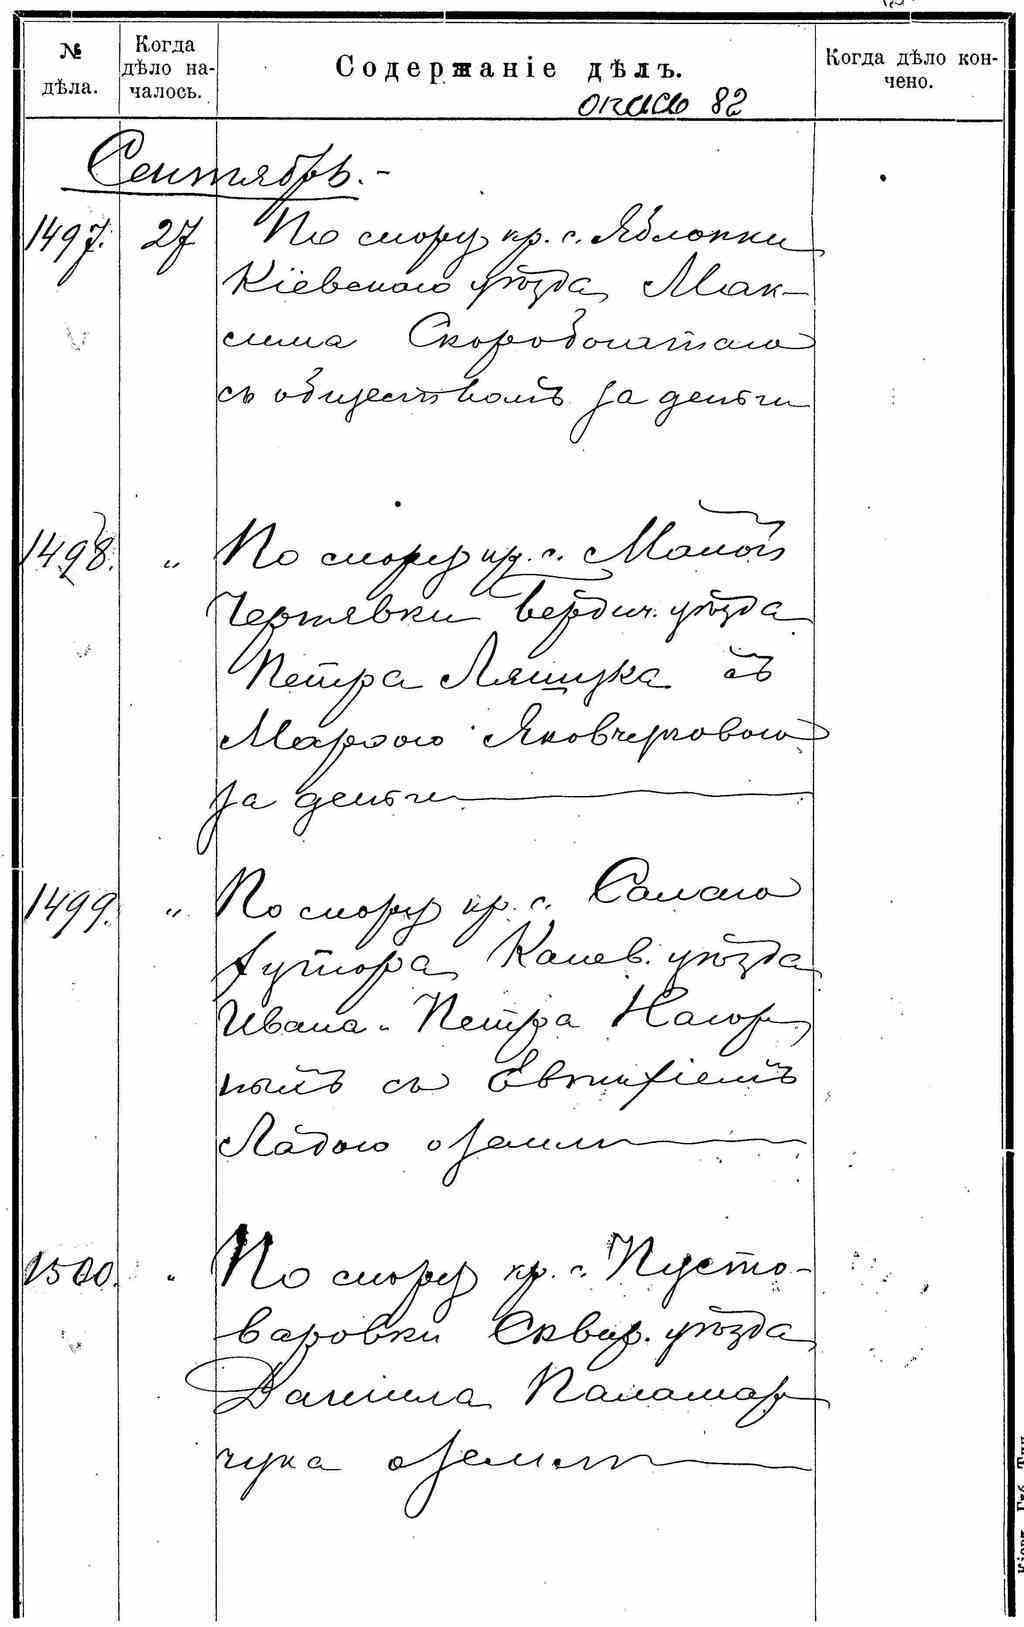 № дѣла.
Когда дѣло на-
чалось.
Содержаніе дѣлъ.
Когда дѣло кон-
чено.
опись 82
Сентябрь.-
1497. 27 По спору кр. с. Яблонки
Кіевскаго уѣзда Мак-
сима Скоробогатаго
съ обществомъ за деньги
1498. „ По спору кр. с. Малой
Чернявки Бердич. уѣзда
Петра Лящука съ
Марѳою
за деньги
1499. „ По спору кр. с.
хутора Канев. уѣзда
Ивана и Петра Нагор
ныхъ съ Евтихіемъ
Ладою о земли
1500. „ По спору кр. с. Пусто-
варовки Сквир. уѣзда
Даніила Паламар
чука о земли
Кіевъ, Губ. Тип.